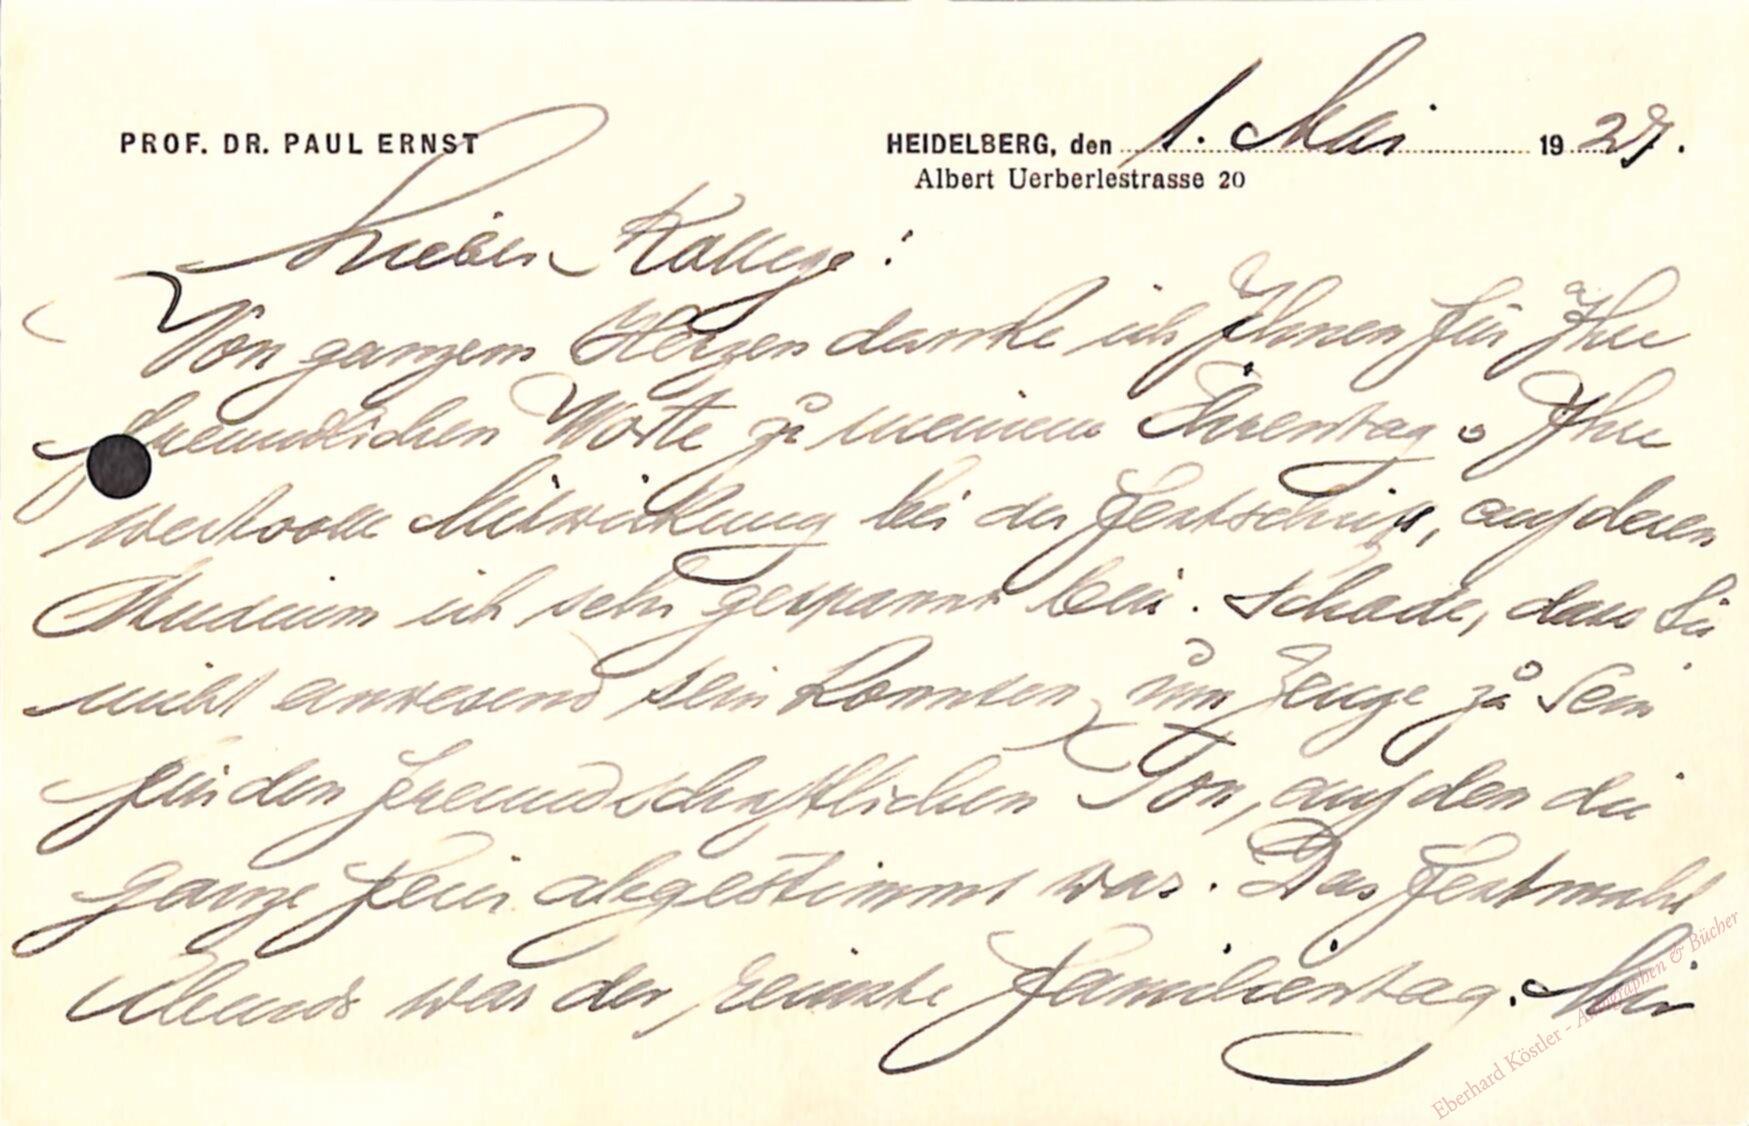 PROF. DR. PAUL ERNST
HEIDELBERG, den 1. Mai 1929.
Albert Ueberlestrasse 20
Lieber Kollege!
Von ganzem Herzen danke ich Ihnen für Ihre
freundlichen Worte zu meinem Ehrentag. Ihre
wertvolle Mitwirkung bei der Festschrift, auf deren
Studium ich sehr gespannt bin. Schade, dass Sie
nicht anwesend sein konnten, um Zeuge zu sein
für den freundschaftlichen Ton, auf den die
ganze Feier abgestimmt war. Das Festmahl
Abends war der reinste Familientag. Mir
Eberhard Köstler - Autographen & Bücher